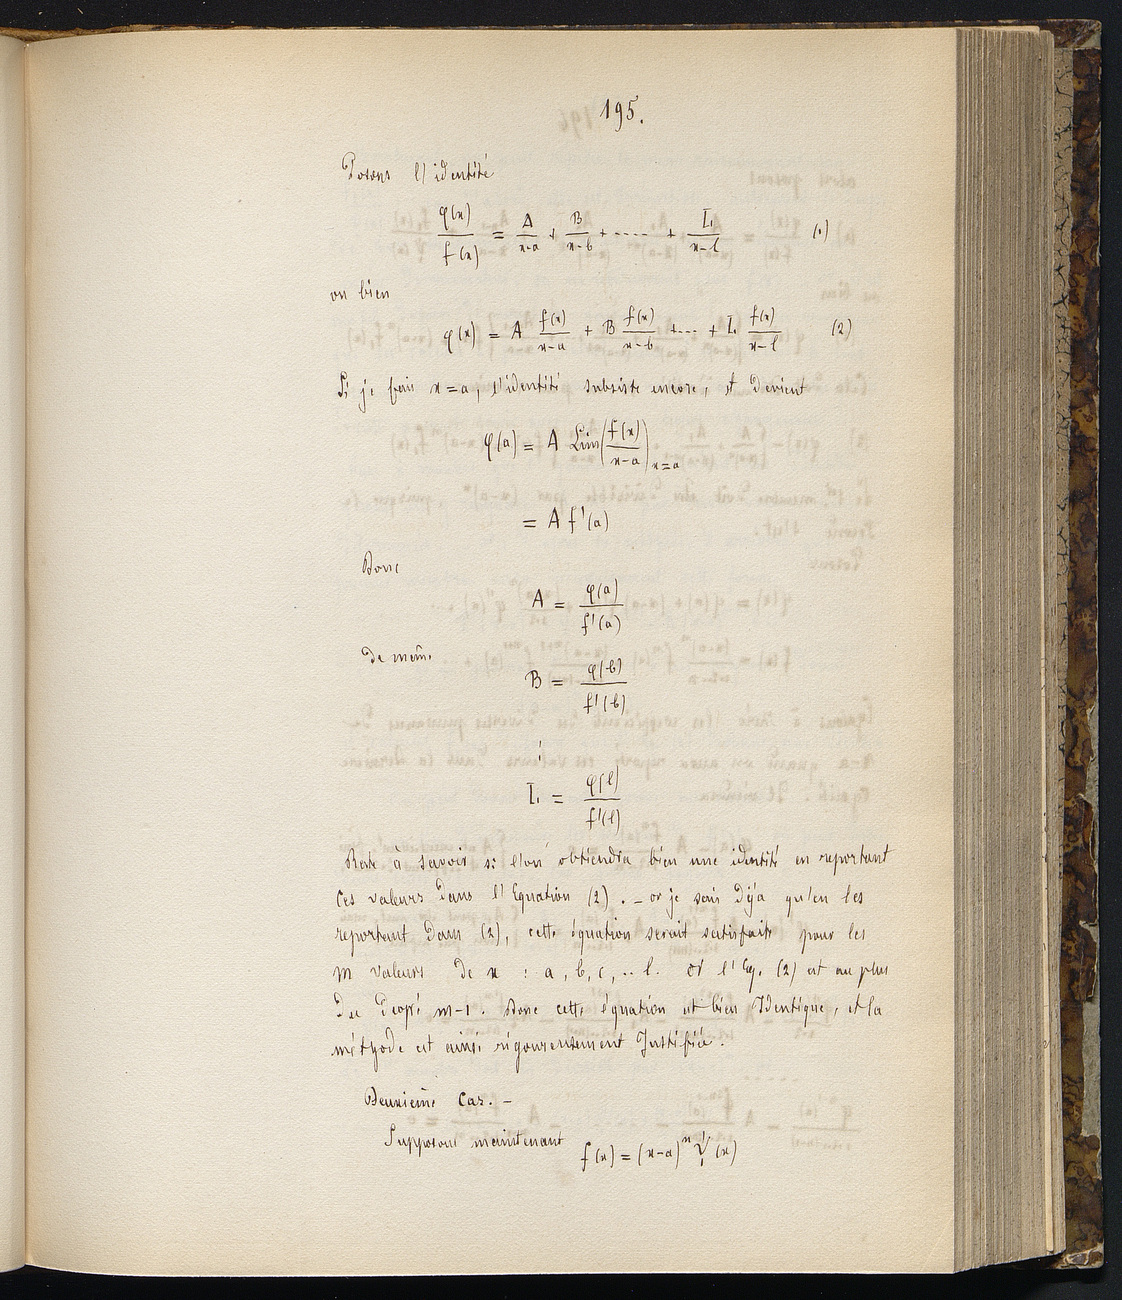 195.
Posons l'identité
φ(x)/f(x) = A/(x-a) + B/(x-b) + ..... + L/(x-l) (1)
ou bien
φ(x) = A f(x)/(x-a) + B f(x)/(x-b) + .... + L f(x)/(x-l) (2)
Si je fais x=a, l'identité subsiste encore, et devient
φ(a) = A Lim (f(x)/(x-a)) x=a
= A f'(a)
Donc
A = φ(a)/f'(a)
de même
B = φ(b)/f'(b)
L = φ(l)/f'(l)
Reste à savoir si l'on obtiendra bien une identité en reportant
ces valeurs dans l'Equation (2). – or je sais déjà qu'en les
reportant dans (2), cette équation serait satisfaite pour les
m valeurs de x : a, b, c, .. l. or l'Eq. (2) est au plus
du degré m-1. Donc cette équation est bien Identique, et la
méthode est ainsi rigoureusement Justifiée.
Deuxième Cas. –
Supposons maintenant f(x) = (x-a)ⁿ ψ(x)